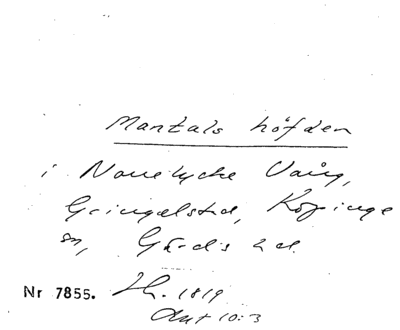 Mantals höfden
i Norrelycke Vång,
Gringelstad, Köpinge
sn, Gärds hd.
Nr 7855. Th. 1819
Ant 10:3